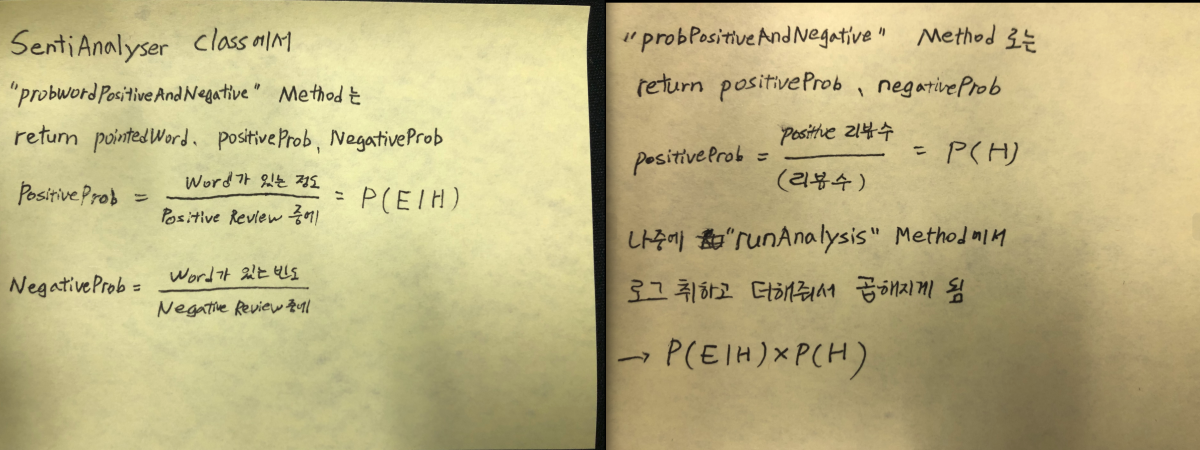 SentiAnalyser Class에서
"probwordPositiveAndNegative" Method는
return pointedWord, positiveProb, NegativeProb
PositiveProb = Word가 있는 정도 / Positive Review 중에 = P(E|H)
NegativeProb = Word가 있는 빈도 / Negative Review 중에
"probPositiveAndNegative" Method 로는
return positiveProb, negativeProb
positiveProb = positive 리뷰수 / (리뷰수) = P(H)
나중에 "runAnalysis" Method에서
로그 취하고 더해줘서 곱해지게 됨
→ P(E|H)×P(H)